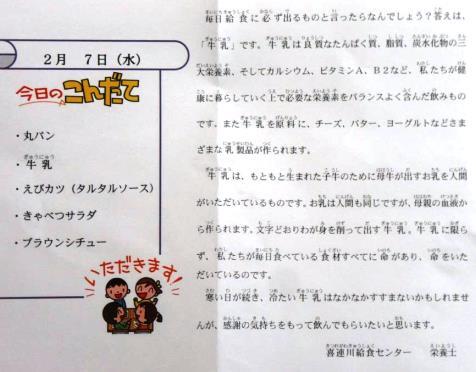 2月　7日（水）
今日のこんだて
・丸パン
・牛乳
・えびカツ（タルタルソース）
・きゃべつサラダ
・ブラウンシチュー
いただきます！
毎日給食に必ず出るものと言ったらなんでしょう？答えは、
「牛乳」です。牛乳は良質なたんぱく質、脂質、炭水化物の三
大栄養素、そしてカルシウム、ビタミンA、B2など、私たちが健
康に暮らしていく上で必要な栄養素をバランスよく含んだ飲みもの
です。また牛乳を原料に、チーズ、バター、ヨーグルトなどさま
ざまな乳製品が作られます。
牛乳は、もともと生まれた子牛のために母牛が出すお乳を人間
がいただいているものです。お乳は人間も同じですが、母親の血液か
ら作られます。文字どおりわが身を削って出す牛乳。牛乳に限ら
ず、私たちが毎日食べている食材すべてに命があり、命をいた
だいているのです。
寒い日が続き、冷たい牛乳はなかなかすすまないかもしれませ
んが、感謝の気持ちをもって飲んでもらいたいと思います。
喜連川給食センター　栄養士